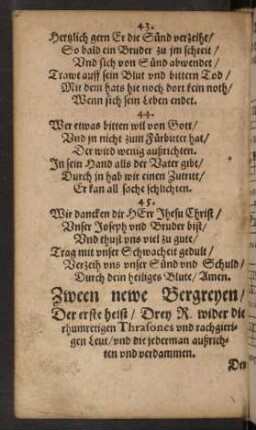 43.
Hertzlich gern Er die Sünd verzeiht/
So bald ein Bruder zu jm schreit/
Vnd sich von Sünd abwendet/
Trawt auff sein Blut vnd bittern Tod/
Mit dem hats hie noch dort kein noth/
Wenn sich sein Leben endet.
44.
Wer etwas bitten wil von Gott/
Vnd jn nicht zum Fürbitter hat/
Der wird wenig außrichten.
In sein Hand alls der Vater gibt/
Durch jn hab wir einen Zutritt/
Er kan all sache schlichten.
45.
Wir dancken dir HErr Jhesu Christ/
Vnser Joseph vnd Bruder bist/
Vnd thust vns viel zu gute/
Trag mit vnser Schwacheit gedult/
Verzeih vns vnser Sünd vnd Schuld/
Durch dein heiliges Blute/ Amen.
Zween newe Bergreyen/
Der erste heist/ Drey R. wider die
rhumretigen Thrasones vnd rachgiri-
gen Leut/ vnd die jederman außrich-
ten vnd verdammen.
Den